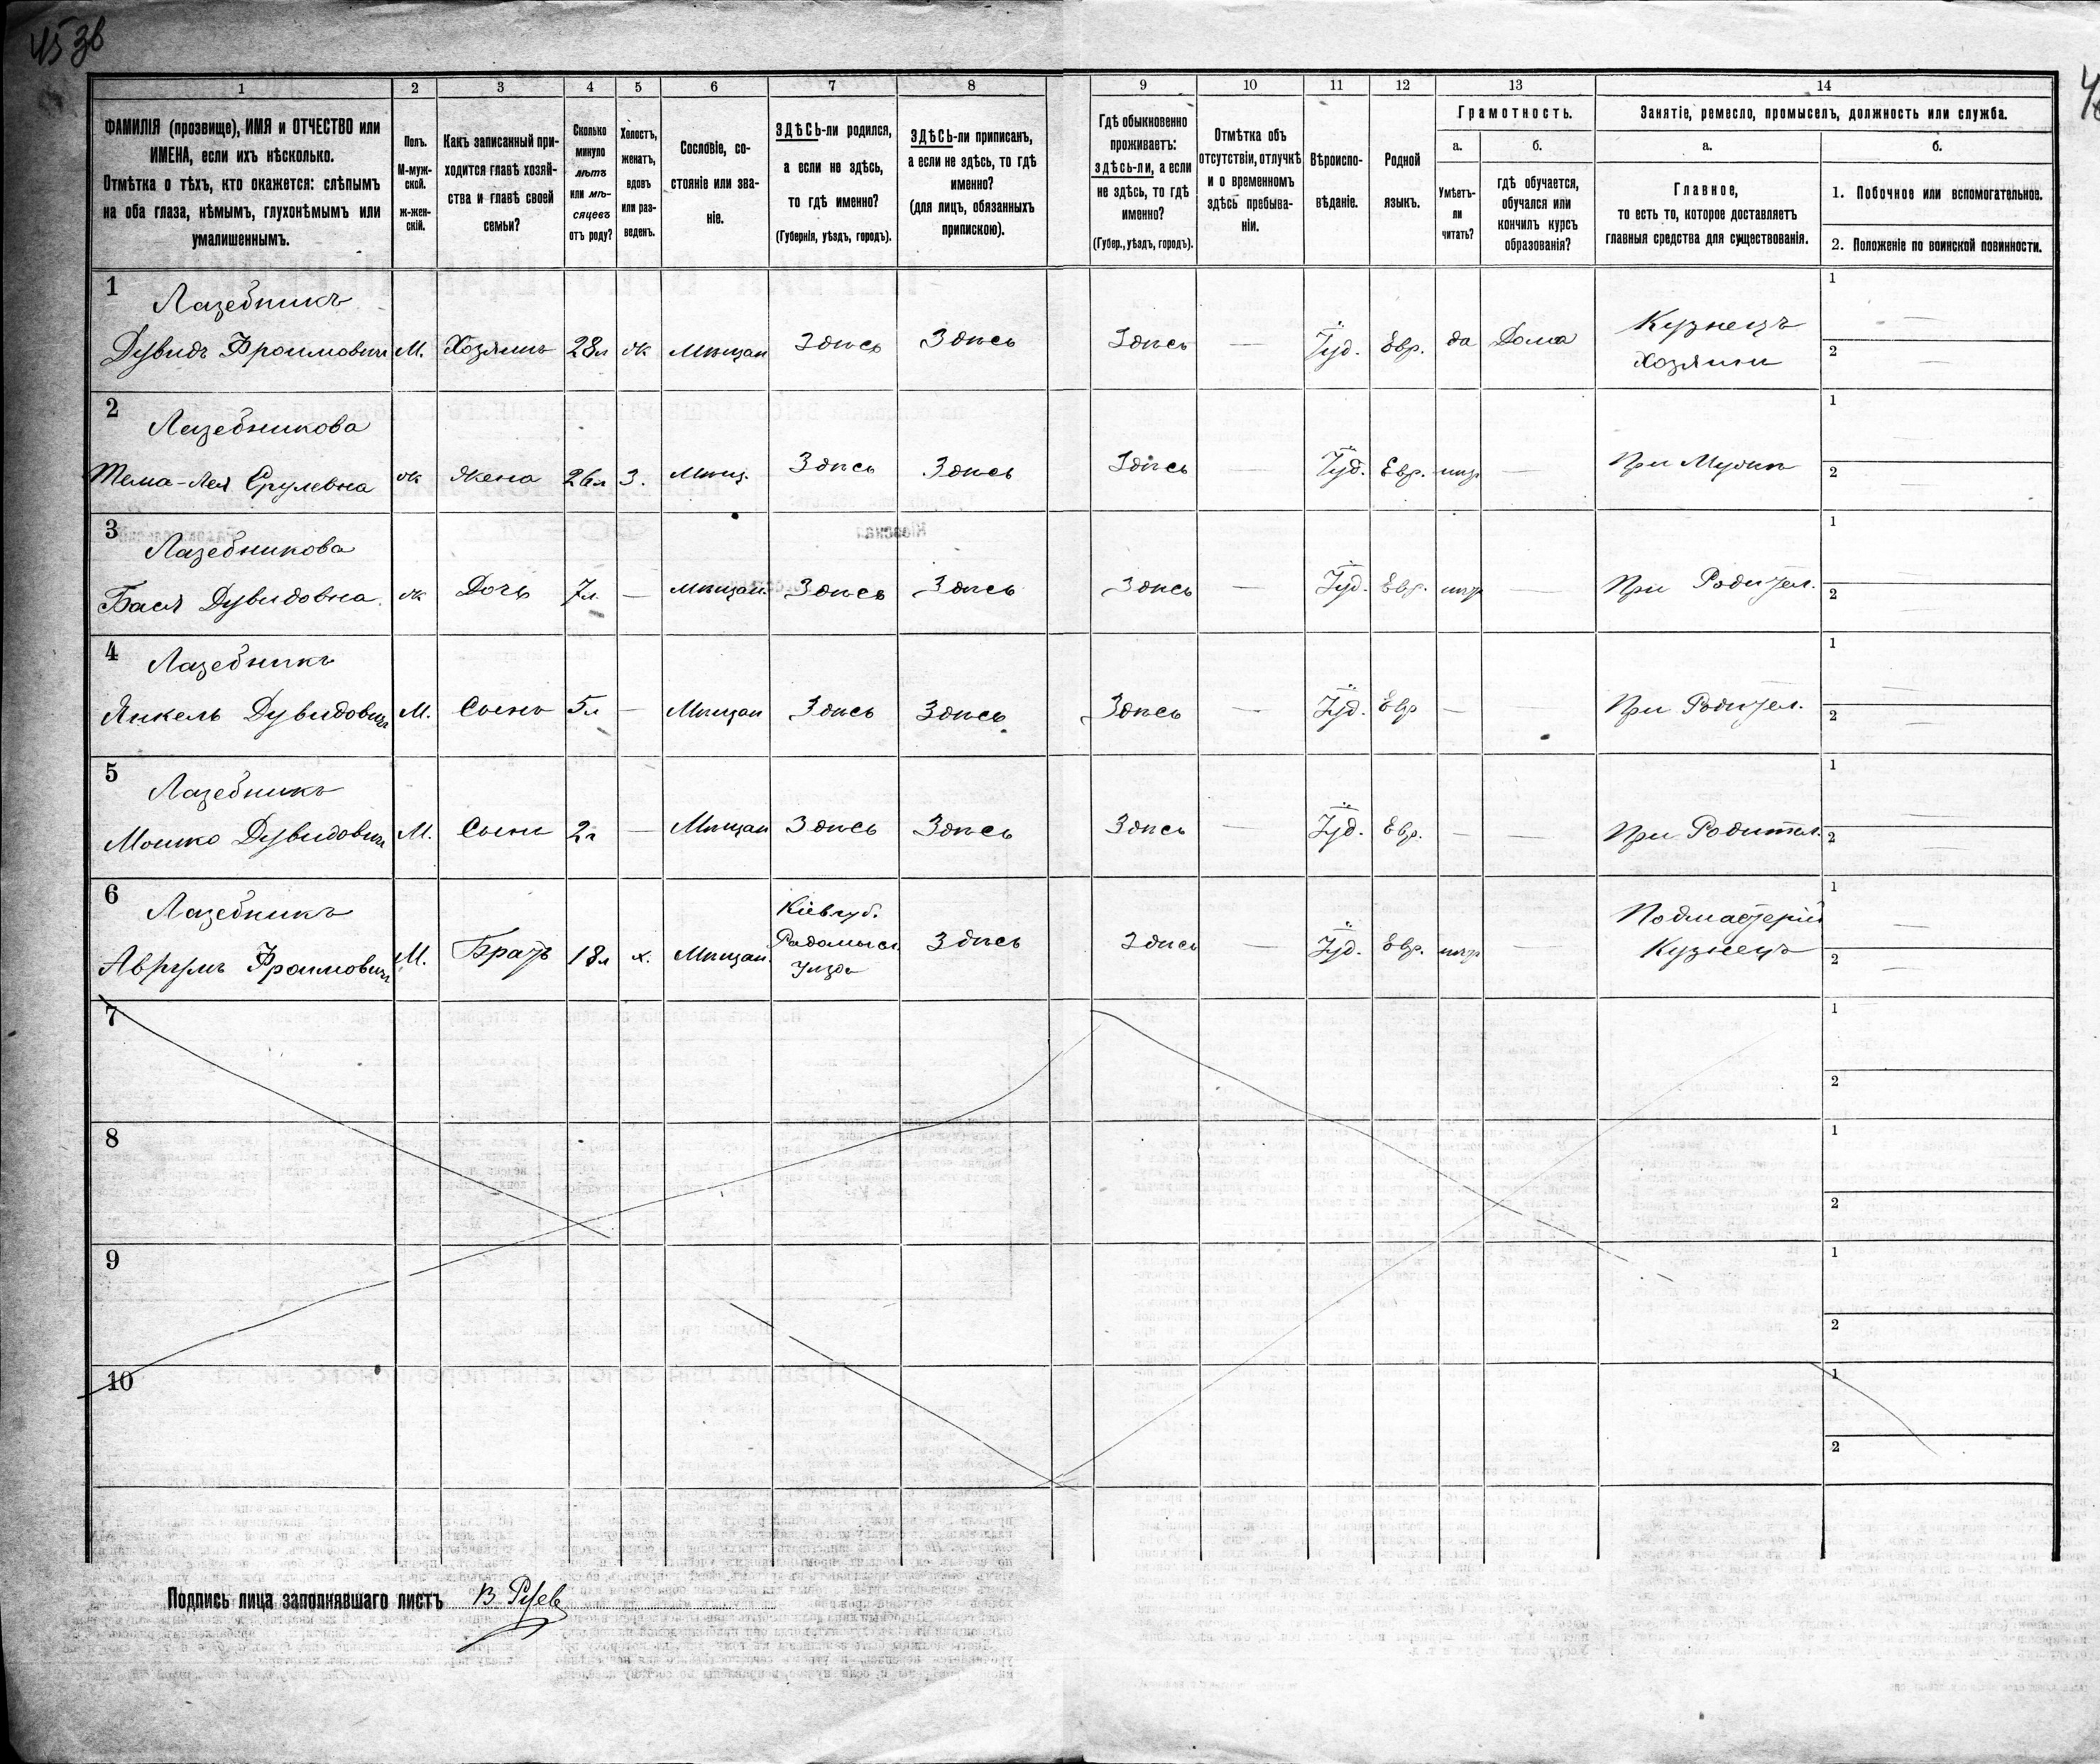 45 зв
1 2 3 4 5 6 7 8 9 10 11 12 13 14
ФАМИЛІЯ (прозвище), ИМЯ и ОТЧЕСТВО или
ИМЕНА, если ихъ нѣсколько.
Отмѣтка о тѣхъ, кто окажется: слѣпымъ
на оба глаза, нѣмымъ, глухонѣмымъ или
умалишеннымъ.
Полъ.
М-муж-
ской.
ж-жен-
скій.
Какъ записанный при-
ходится главѣ хозяй-
ства и главѣ своей
семьи?
Сколько
минуло
лѣтъ
или мѣ-
сяцевъ
отъ роду?
Холостъ,
женатъ,
вдовъ
или раз-
веденъ.
Сословіе, со-
стояніе или зва-
ніе.
ЗДѢСЬ-ли родился,
а если не здѣсь,
то гдѣ именно?
(Губернія, уѣздъ, городъ).
ЗДѢСЬ-ли приписанъ,
а если не здѣсь, то гдѣ
именно?
(для лицъ, обязанныхъ
припискою).
Гдѣ обыкновенно
проживаетъ:
здѣсь-ли, а если
не здѣсь, то гдѣ
именно?
(Губер., уѣздъ, городъ).
Отмѣтка объ
отсутствіи, отлучкѣ
и о временномъ
здѣсь пребыва-
ніи.
Вѣроиспо-
вѣданіе.
Родной
языкъ.
Грамотность.
а.
Умѣетъ-
ли
читать?
б.
гдѣ обучается,
обучался или
кончилъ курсъ
образованія?
Занятіе, ремесло, промыселъ, должность или служба.
а.
Главное,
то есть то, которое доставляетъ
главныя средства для существованія.
б.
1. Побочное или вспомогательное.
2. Положеніе по воинской повинности.
1 Лазебникъ Кузнецъ 1 —
Дувидъ Фроимовичъ М. Хозяинъ 28л ж Мѣщан Здѣсь Здѣсь Здѣсь — Іуд. Евр. да Дома Хозяинъ 2 —
2 Лазебникова 1 —
Тема-Лея Срулевна ж Жена 26л З. Мѣщ. Здѣсь Здѣсь Здѣсь — Іуд. Евр. нѣтъ — При Мужѣ 2 —
3 Лазебникова 1 —
Бася Дувидовна ж Дочь 7л — Мѣщан. Здѣсь Здѣсь Здѣсь — Іуд. Евр. нѣтъ — При Родител. 2 —
4 Лазебникъ 1 —
Янкель Дувидовичъ М. Сынъ 5л — Мѣщан Здѣсь Здѣсь Здѣсь — Іуд. Евр — При Родител. 2 —
5 Лазебникъ 1 —
Мошко Дувидовичъ М. Сынъ 2г — Мѣщан Здѣсь Здѣсь Здѣсь — Іуд. Евр. — — При Родител. 2 —
6 Лазебникъ Кіев губ. Подмастерій 1 —
Аврумъ Фроимовичъ М. Братъ 18л х. Мѣщан. Радомысл. Здѣсь Здѣсь — Іуд. Евр. нѣтъ — Кузнецъ 2 —
Уѣзда
7 1
2
8 1
2
9 1
2
10 1
2
Подпись лица заполнявшаго листъ